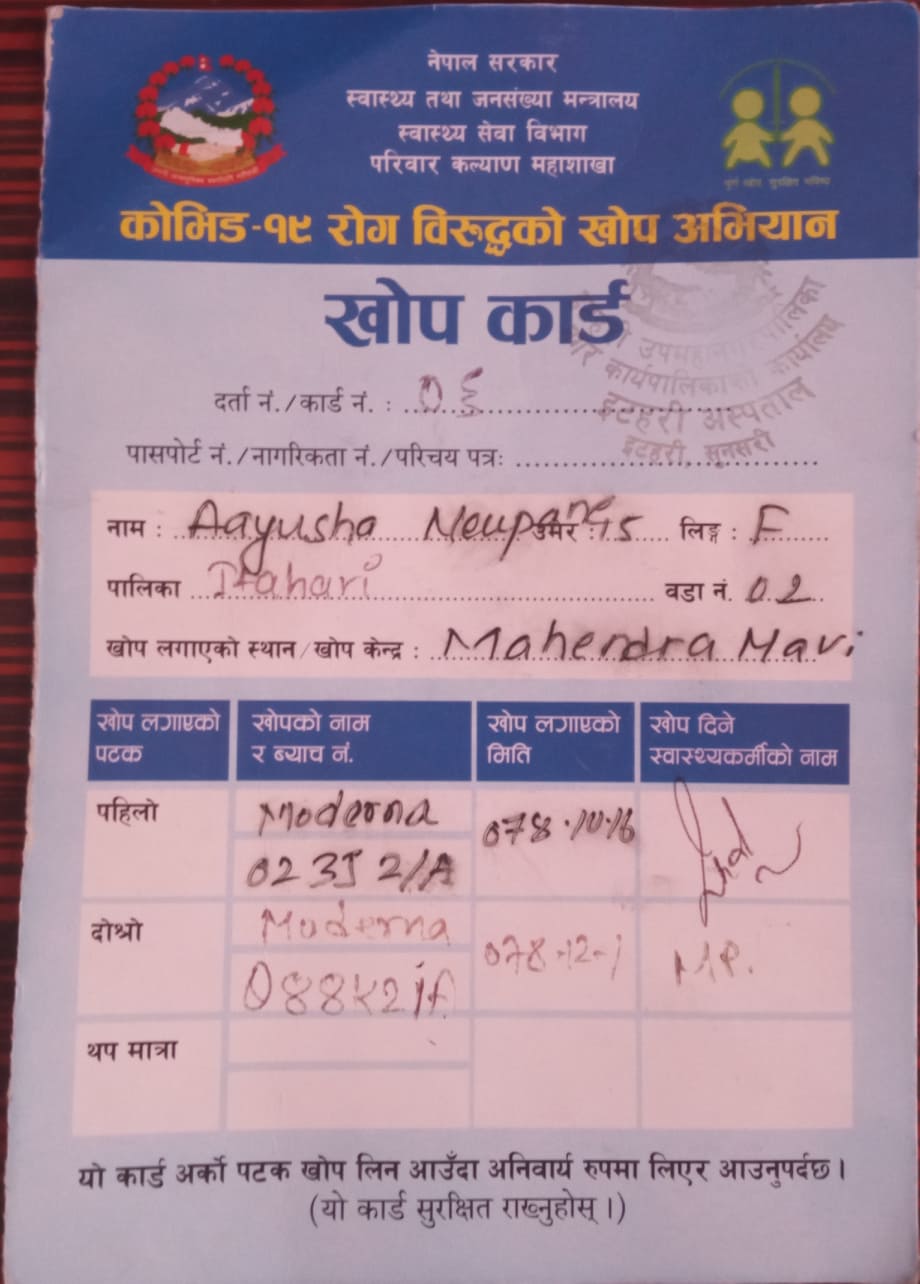 नेपाल सरकार
स्वास्थ्य तथा जनसंख्या मन्त्रालय
स्वास्थ्य सेवा विभाग
परिवार कल्याण महाशाखा
कोभिड-१९ रोग विरुद्धको खोप अभियान
खोप कार्ड
उपमहानगरपालिका
कार्यपालिकाको कार्यालय
इटहरी अस्पताल
इटहरी, सुनसरी
दर्ता नं./कार्ड नं. : ०६
पासपोर्ट नं./नागरिकता नं./परिचय पत्रः
नाम : Aayusha Neupane उमेर : 15 लिङ्ग : F
पालिका Itahari वडा नं. 02
खोप लगाएको स्थान/खोप केन्द्र : Mahendra Mavi
खोप लगाएको पटक खोपको नाम र ब्याच नं. खोप लगाएको मिति खोप दिने स्वास्थ्यकर्मीको नाम
पहिलो Moderna 078.10.16
023J21A
दोश्रो Moderna 078-12-1 M.P.
088K21A
थप मात्रा
यो कार्ड अर्को पटक खोप लिन आउँदा अनिवार्य रुपमा लिएर आउनुपर्दछ।
(यो कार्ड सुरक्षित राख्नुहोस्।)